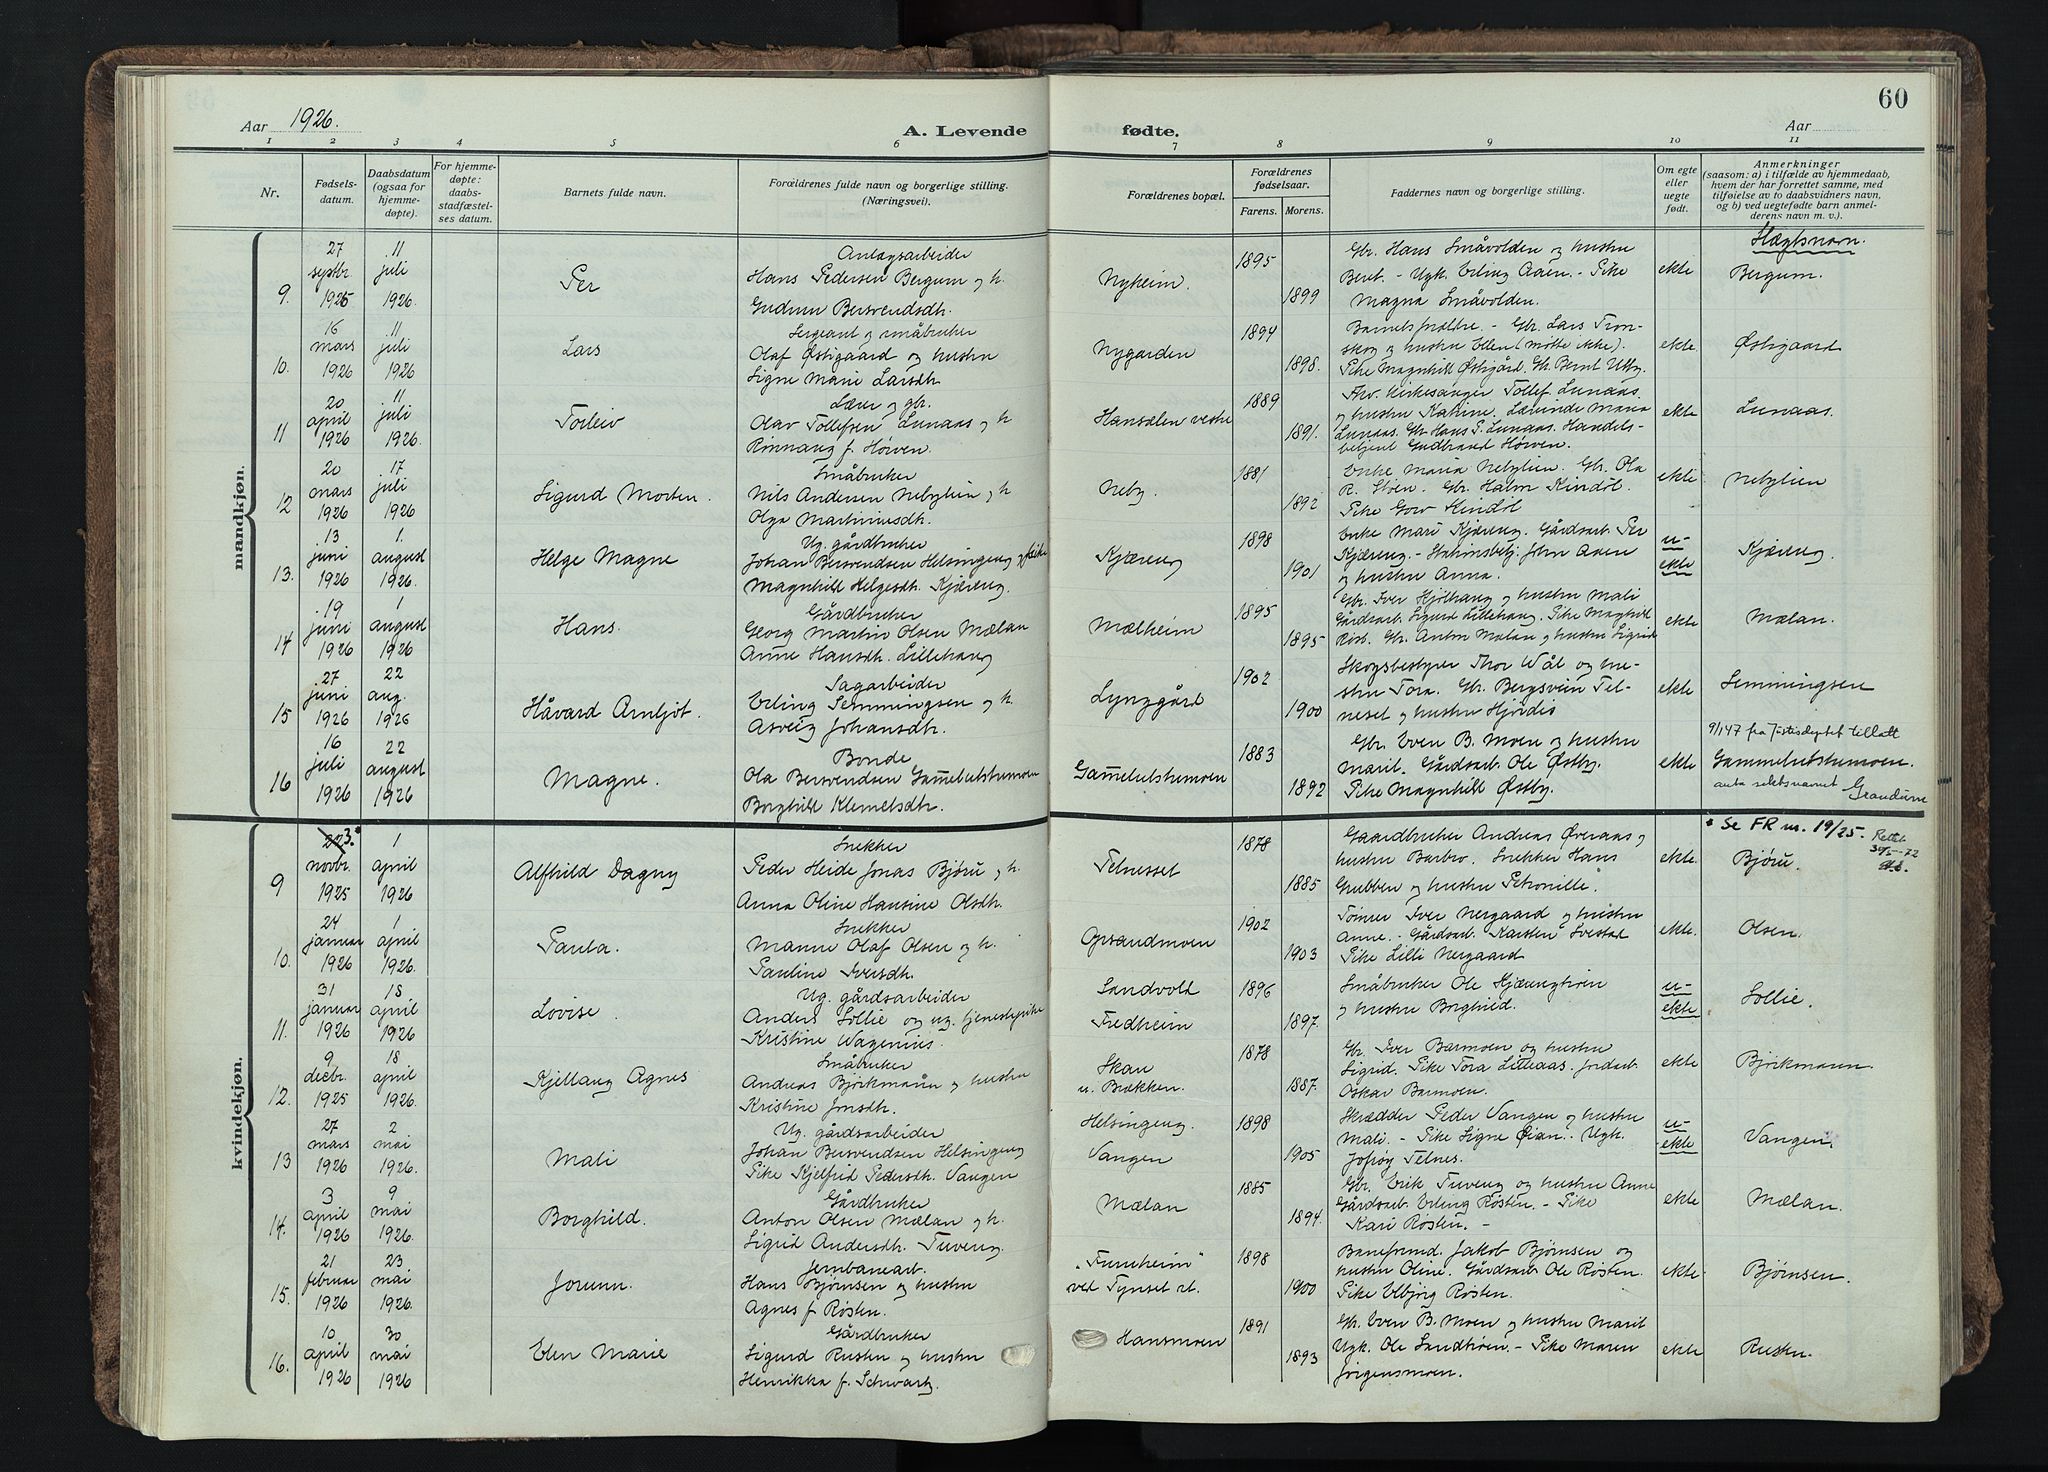 Aar 1926.
A. Levende
fødte.
60
Aar
1 2 3 4 5 6 7 8 9 10 11
Nr.
Fødsels-
datum.
Daabsdatum
(ogsaa for
hjemme-
døpte).
For hjemme-
døpte:
daabs-
stadfæstel-
ses datum.
Barnets fulde navn.
Forældrenes fulde navn og borgerlige stilling.
(Næringsvei).
Forældrenes bopæl.
Forældrenes
fødselsaar.
Farens. Morens.
Faddernes navn og borgerlige stilling.
Om egte
eller
uegte
født.
Anmerkninger
(saasom: a) i tilfælde av hjemmedaab,
hvem der har forrettet samme, med
tilføielse av to daabsvidners navn,
og b) ved uegtefødte barn anmel-
derens navn m. v.).
mandkjøn.
9.
27
septbr.
1925
11
juli
1926.
Per
Anlægsarbeider
Hans Pedersen Bergum og h.
Gudrun Bersvendsdh.
Nyheim.
1895
1899
Gbr. Hans Småvolden og hustru
Beret - Ugk. Erling Aaen. - Pike
Magna Småvolden.
ekte
Slægtsnavn.
Bergum.
10.
16
mars
1926
11
juli
1926
Lars
Sergeant og småbruker
Olaf Østigaard og hustru
Signe Marie Larsdh.
Nygarden
1894
1898.
Barnets forældre. - Gbr. Lars Tron-
skog og hustru Ellen (møtte ikke).
Pike Magnhild Østigård. Gbr. Bernt Utby.
ekte.
Østigaard
11
20
april
1926
11
juli
1926.
Torleiv
Lærer og gbr.
Olav Tollefsen Lunaas og h
Rønnaug f. Høiven.
Hansælen vestre
1889
1891.
Fhv. Kirkesanger Tollef Lunaas
og hustru Katrine. Lærerinde Maria
Lunaas. Gbr Hans T. Lunaas. Handels-
betjent Gudbrand Høiven.
ekte
Lunaas.
12
20
mars
1926
17
juli
1926
Sigurd Morten.
Småbruker
Nils Andersen Nebylien og h
Olga Martiniusdh.
Neby.
1881
1892
Enke Maria Nebylien. Gbr. Ola
R. Støen. Gbr. Halvor Kindøl.
Pike Goro Kindøl
ekte
Nebylien
13.
13
juni
1926
1.
august
1926.
Helge Magne
Ug. gårdbruker
Johan Bersvendsen Helsingeng og pike
Magnhild Helgesdh. Kjæreng.
Kjæreng
1898
1901
Enke Mari Kjæreng. Gårdsarb. Per
Kjæreng. - Stationsbetj. John Aaen
og hustru Anna.
u-
ekte
Kjæreng.
14
19
juni
1926
1
august
1926
Hans.
Gårdbruker
Georg Martin Olsen Mælan
Anne Hansdh. Lillehaug
Mælheim
1895
1895
Gbr. Iver Hjolhaug og hustru Mali
Gårdsarb. Sigurd Lillehaug. Pike Maghild
Gbr. Anton Mælan og hustru Sigrid
ekte
Mælan.
15
27
juni
1926
22
aug.
1926
Håvard Arnljot.
Sagarbeider
Erling Semmingsen og h.
Asveig Johansdh.
Lynggård
1902
1900
Skogsbestyrer Thor Wål og hu-
stru Tora. Gbr. Bergsvein Tel-
neset og hustru Hjørdis
ekte
Semmingsen
16
16
juli
1926
22
august
1926
Magne.
Bonde
Ola Bersvendsen Gammelutstumoen
Borghild Klemetsdh.
Gammelutstumoen
1883
1892
Gbr. Even B. Moen og hustru
Marit. Gårdsarb. Ole Østby.
Pike Magnhild Østby.
ekte
9/1 47 fra Justisdeptet tillatt
Gammelutstumoen.
anta slektsnavnet Grandum
kvindekjøn.
9
22 3.*
novbr.
1925
1
april
1926
Alfhild Dagny
Snekker
Peder Heide Jonas Bjøru og h.
Anna Oline Hansine Olsdh.
Telnesset
1878
1885
Gaardbruker Andreas Øveraas og
hustru Barbro. Snekker Hans
Grubben og hustru Petronille.
ekte.
* Se FR nr. 19/25. Rettet
Bjøru.
10.
24
januar
1926
1
april
1926.
Paula.
Snekker
Manne Olaf Olsen og h.
Pauline Iversdh.
Opsandmoen
1902
1903
Tømrer Iver Nergaard og hustru
Anne. - Gårdsarb. Karsten Svestad
Pike Lilli Nergaard
ekte.
Olsen.
11.
31
januar
1926
18
april
1926
Lovise.
Ug. gårdsarbeider
Anders Sollie og ug. tjenestepike
Kristine Wagenius.
Sandvold
Fredheim
1896
1897.
Småbruker Ole Kjærengtrøen
og hustru Borghild.
u-
ekte
Sollie.
12.
9
decbr.
1925
18
april
1926.
Kjellaug Agnes
Småbruker
Andreas Bjørkmann og hustru
Kristine Jonsdh.
Skan
u. Brækken.
1878
1887.
Gbr. Iver Barmoen og hustru
Sigrid. Pike Tora Lilleaas. Jordarb.
Oskar Barmoen.
ekte
Bjørkmann
13
27
mars
1926
2
mai
1926.
Mali
Ug. gårdsarbeider
Johan Bersvendsen Helsingeng
Pike Kjelfrid Pedersdh. Vangen
Helsingeng.
Vangen
1898
1905
Skrædder Peder Vangen og hustru
Mali. - Pike Signe Øian. Ugk.
Telnes.
u-
ekte
Vangen.
14.
3
april
1926
9
mai
1926.
Borghild.
Gårdbruker
Anton Olsen Mælan og h.
Sigrid Andersdh. Tuveng.
Mælan
1885
1894.
Gbr. Erik Tuveng og hustru Anne
Gårdsarb. Erling Røsten. - Pike
Kari Røsten. -
ekte
Mælan.
15.
21
februar
1926
23
mai
1926.
Jorunn.
Jernbanearb.
Hans Bjørnsen og hustru
Agnes f Røsten.
"Furuheim"
ved Tynset st.
1898
1900
Baneformd. Jakob Bjørnsen og
hustru Oline. Gårdsarb Ole Røsten.
Pike Ulbjørg Røsten.
ekte
Bjørnsen.
16.
10
april
1926
30
mai
1926
Elen Marie
Gårdbruker
Sigurd Rusten og hustru
Henrikka f. Schwartz.
Hansmoen
1891
1893
Gbr. Even B. Moen og hustru Marit
Ugk. Ole Sandtrøen. - Pike Maren
Jørgensmoen.
ekte
Rusten.